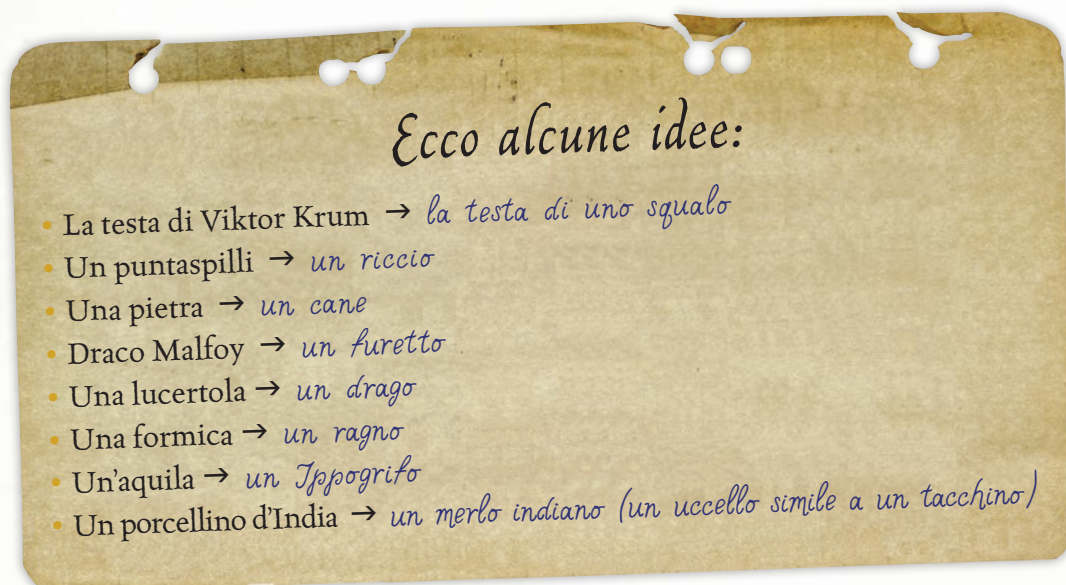 Ecco alcune idee:
• La testa di Viktor Krum → la testa di uno squalo
• Un puntaspilli → un riccio
• Una pietra → un cane
• Draco Malfoy → un furetto
• Una lucertola → un drago
• Una formica → un ragno
• Un'aquila → un Ippogrifo
• Un porcellino d'India → un merlo indiano (un uccello simile a un tacchino)